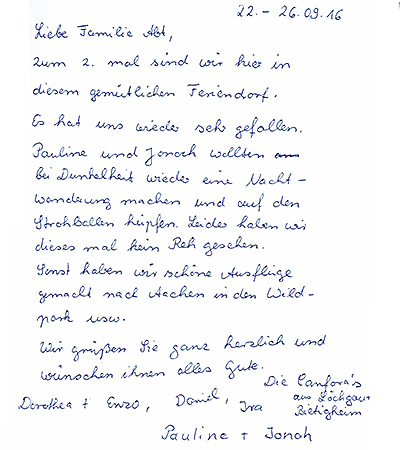 22. - 26.09.16
Liebe Familie Abt,
zum 2. mal sind wir hier in
diesem gemütlichen Feriendorf.
Es hat uns wieder sehr gefallen.
Pauline und Jonah wollten
bei Dunkelheit wieder eine Nacht-
wanderung machen und auf den
Strohballen hüpfen. Leider haben wir
dieses mal kein Reh gesehen.
Sonst haben wir schöne Ausflüge
gemacht nach Aachen in den Wild-
park usw.
Wir grüßen Sie ganz herzlich und
wünschen ihnen alles Gute.
Die Canfora's
aus Löchgau
Bietigheim
Dorothea + Enzo, Daniel, Ira
Pauline + Jonah